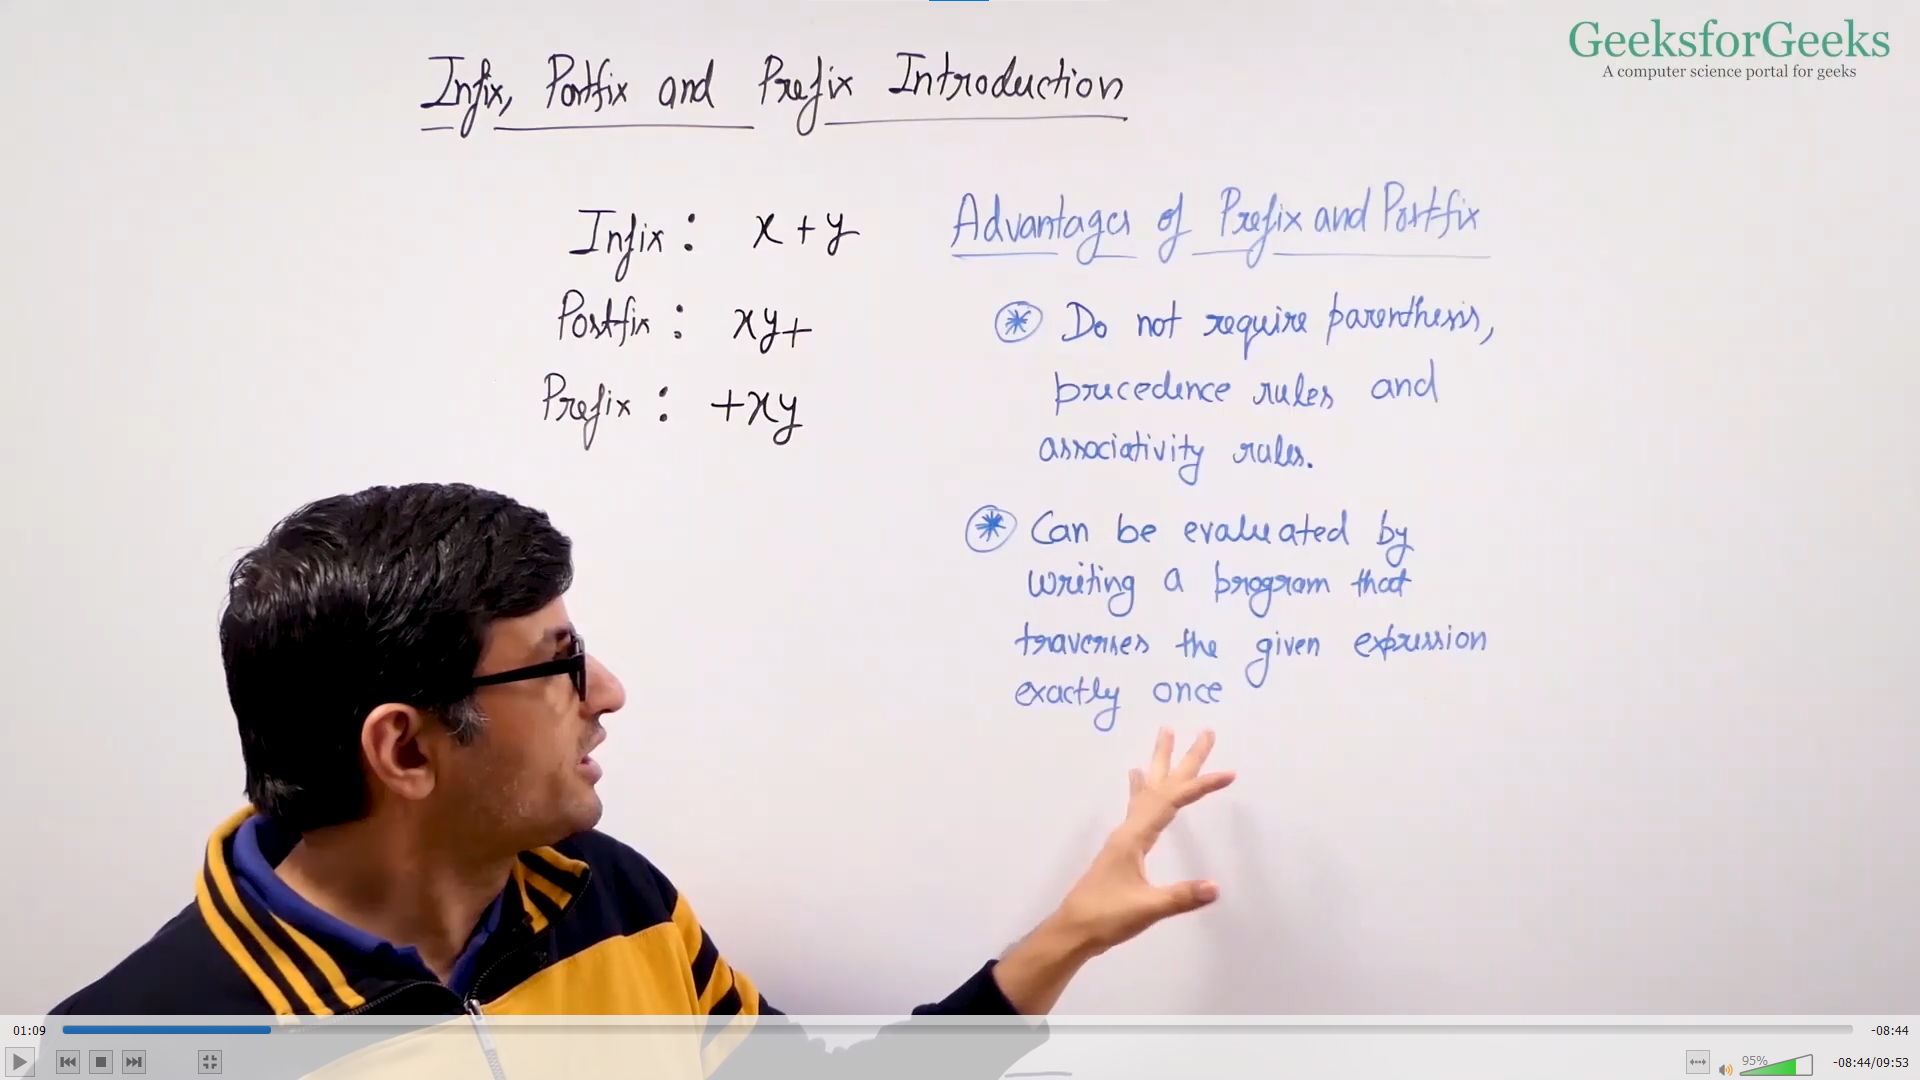 GeeksforGeeks
A computer science portal for geeks
Infix, Postfix and Prefix Introduction
Infix : x + y
Postfix : xy+
Prefix : +xy
Advantages of Prefix and Postfix
* Do not require parenthesis,
precedence rules and
associativity rules.
* Can be evaluated by
writing a program that
traverses the given expression
exactly once
01:09
-08:44
95%
-08:44/09:53